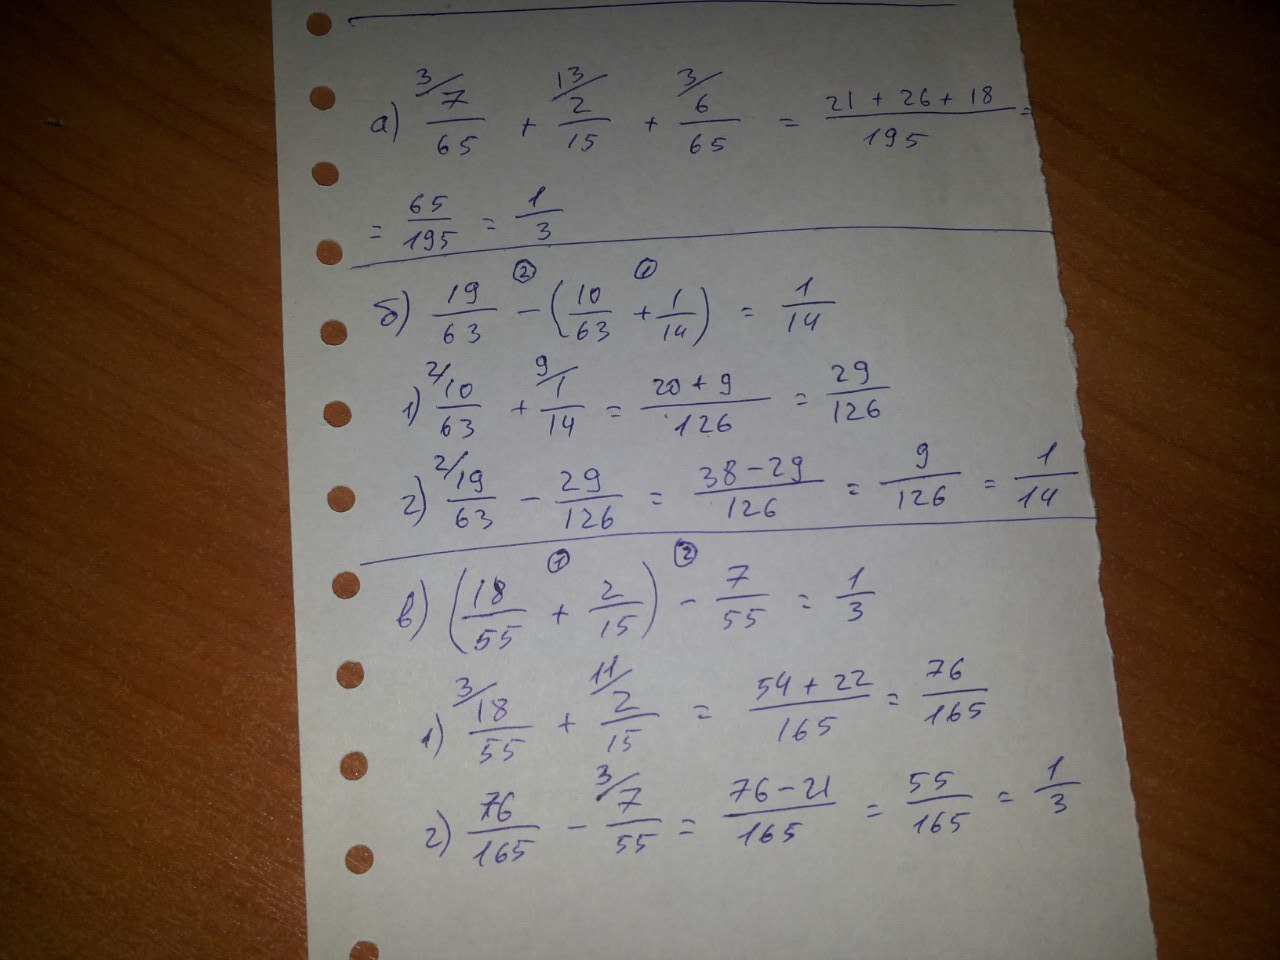 а) 3/ 7/65 + 13/ 2/15 + 3/ 6/65 = (21 + 26 + 18)/195 =
= 65/195 = 1/3
② ①
б) 19/63 - (10/63 + 1/14) = 1/14
1) 2/ 10/63 + 9/ 1/14 = (20 + 9)/126 = 29/126
2) 2/ 19/63 - 29/126 = (38 - 29)/126 = 9/126 = 1/14
① ②
в) (18/55 + 2/15) - 7/55 = 1/3
1) 3/ 18/55 + 11/ 2/15 = (54 + 22)/165 = 76/165
2) 76/165 - 3/ 7/55 = (76 - 21)/165 = 55/165 = 1/3